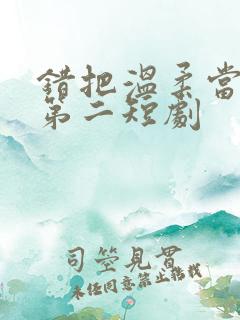 錯把溫柔當
第二短劇
司箜見實
未任同意禁止轉載